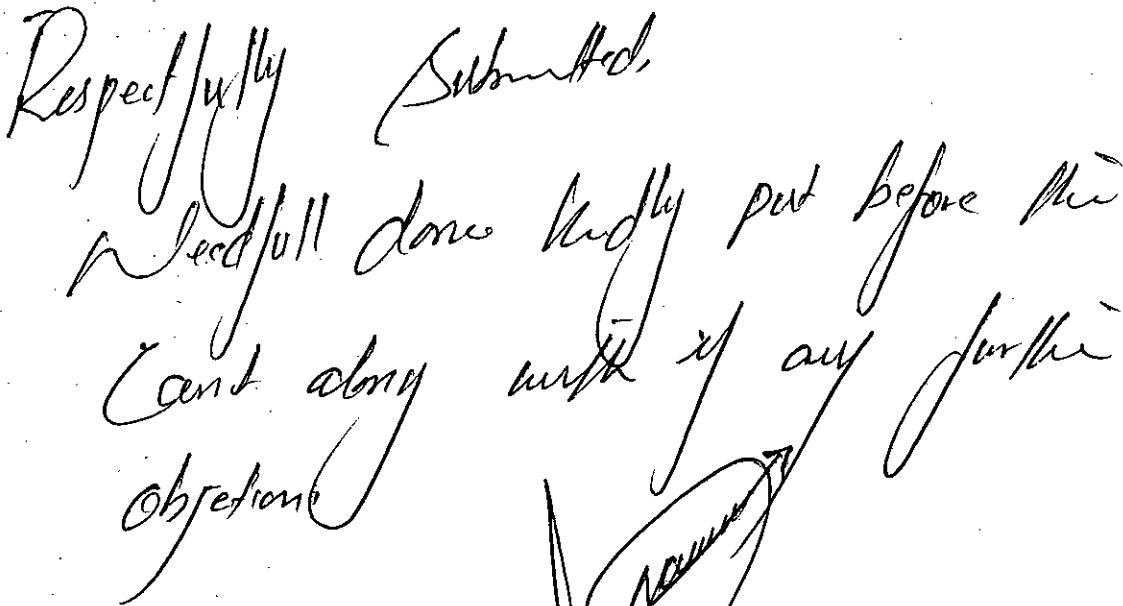 Respectfully Submitted,
Needfull done kindly put before the
Court along with if any further
Objetion